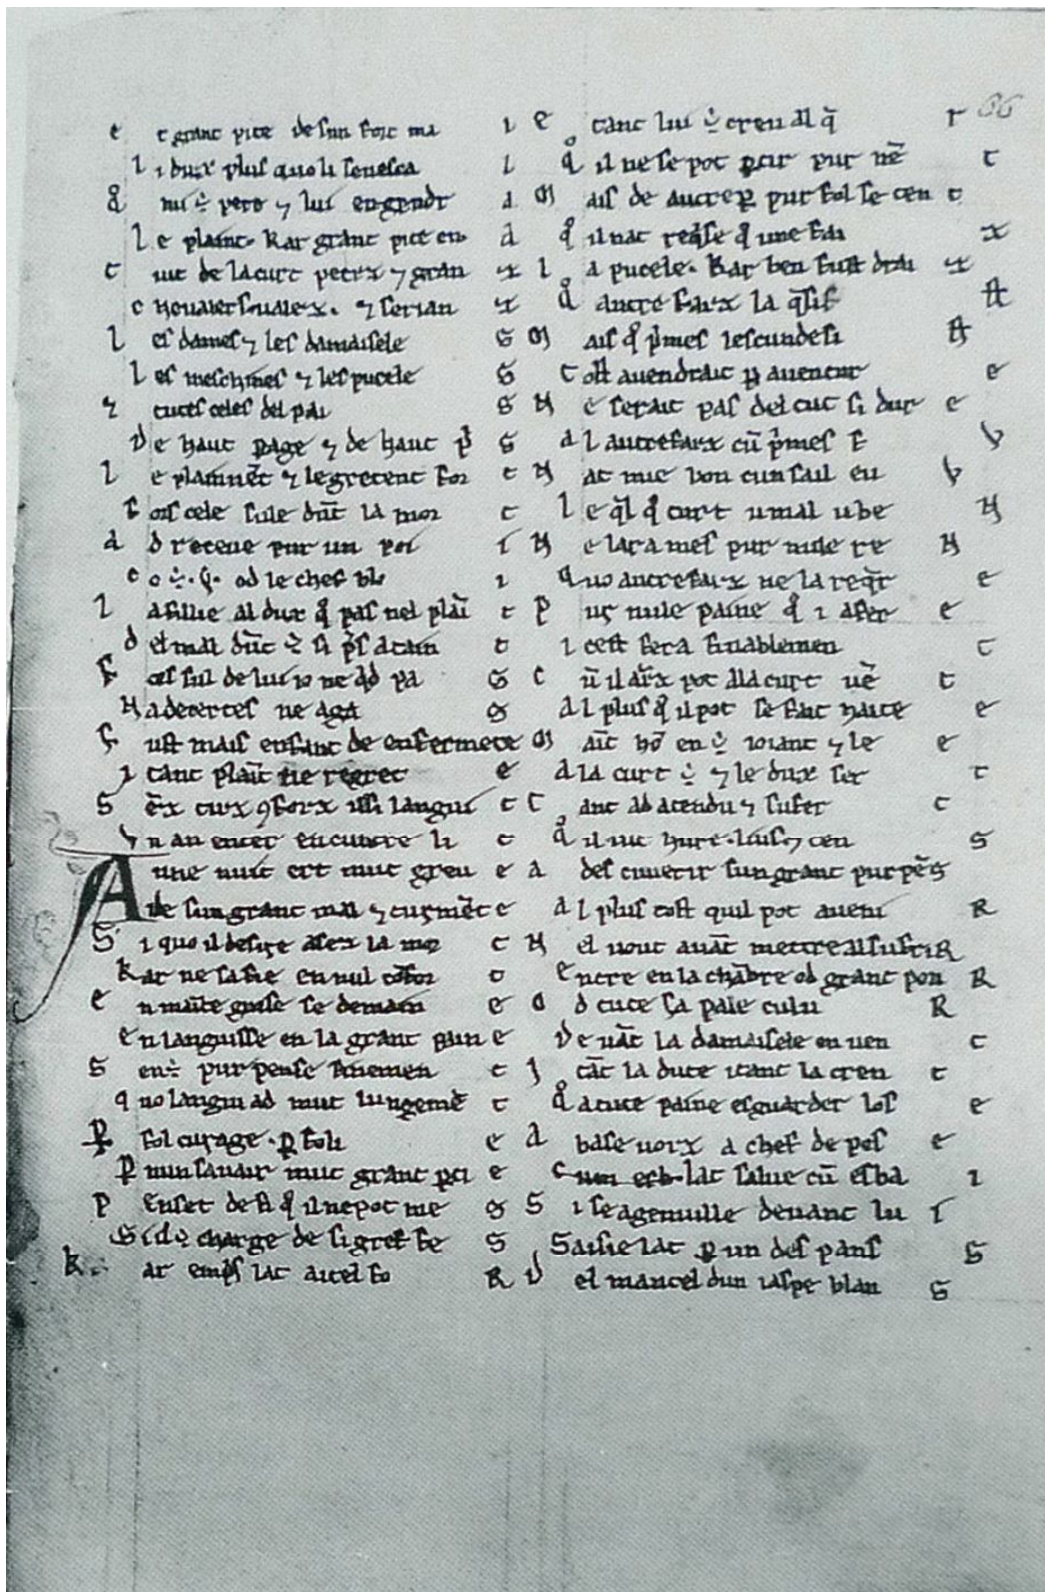 e t grant pite de sun fort ma i
l i dux plus quo li senesca l
q̊ mi ÷ pere ⁊ lui engendr a
l e plaint. Kar grant pite en a
t uit de la curt petiz ⁊ gran x
c ⁊ serian x
l es dames ⁊ les damaisele s
l es meschines ⁊ les pucele s
⁊ tutes celes del pai s
D e haut page ⁊ de haut p̊ s
l e plainnēt ⁊ le gretent for t
f ors cele sule dūt la mor t
a d receue pur un poi i
od le chef bl i
l a fillie al dux q̊ pas nel plai t
d el mal dūt ÷ si p̊s atain t
F ors sul de lui io ne qd pa s
N a decertes ne aga s
F ust mais enfant de enfermete
i tant plaīt ne regret e
S issi langui t
v n an enter encuntre li t
A une nuit ert mut greu e
v e sun grant mal ⁊ turmēt e
S i quo il desire asez la mor t
k ar ne sa fie en nul cōfor t
e n mainte guise se demain e
e n languisse en la grant pain e
S en÷ purpense finemen t
q uo langui ad mut lungemē t
ꝑ fol curage. ꝑ foli e
ꝑ mun sauair mut grant ꝑti e
P enset de fi q̊ il ne pot me s
charge de si gref fe s
k ar lac aitel fo R
e tant lui ÷ creu al q̄ r
q̊ il ne se pot ꝑtir pur nē t
M ais de autre ꝑ pur fol se ten t
q̊ il nat reqise q̊ une fai x
l a pucele. Kar ben fust drai x
q̊ autre faix la q̄sist
M ais q̊ p̊mes lescundesi st
t ost auendrait ꝑ auentur e
N e serait pas del tut si dur e
a l autrefaix cū p̊mes f v
N at mie bon cunsail eu v
l e ql q̊ curt u mal u be N
N e lara mes pur nule re N
q uo autrefaix ne la reqr e
P ur nule paine q̊ i afer e
i cest fera finablemen t
C ū il pot a la curt uē t
A l plus q̊ il pot se fait haite e
M aīt hō en ÷ ioiant ⁊ le e
A la curt ÷ ⁊ le dux ser t
T ant ad atendu ⁊ sufer t
q̊ il uit hure. ten s
a des cuuerir sun grant purpēs
A l plus tost quil pot aueni R
N el uout auāt mettre al sufriR
E ntre en la chābre od grant poo R
O d tute sa pale culu R
D euāt la damaisele en uen t
I tāt la dute itant la cren t
q̊ a tute paine esguarder los e
a base uoix a chef de pes e
lat salue cū esba i
S i se agenuille deuant lu i
S aisie lat ꝑ un des pans s
D el mantel dun iaspe blan s